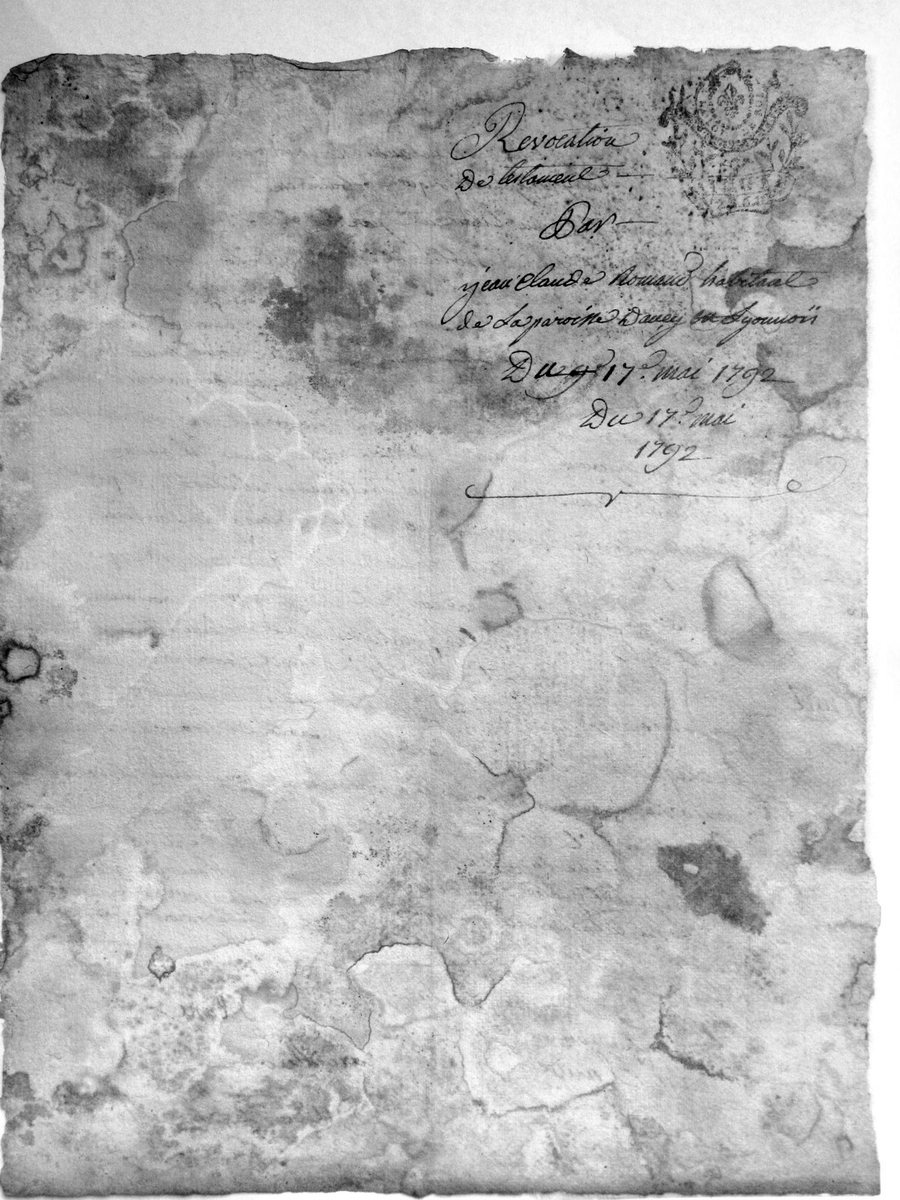 Revocation
De testament
Par
jean Claude Romand habitant
de La paroisse Davey en Lyonnois
Du 17.e mai 1792
Du 17.e mai
1792